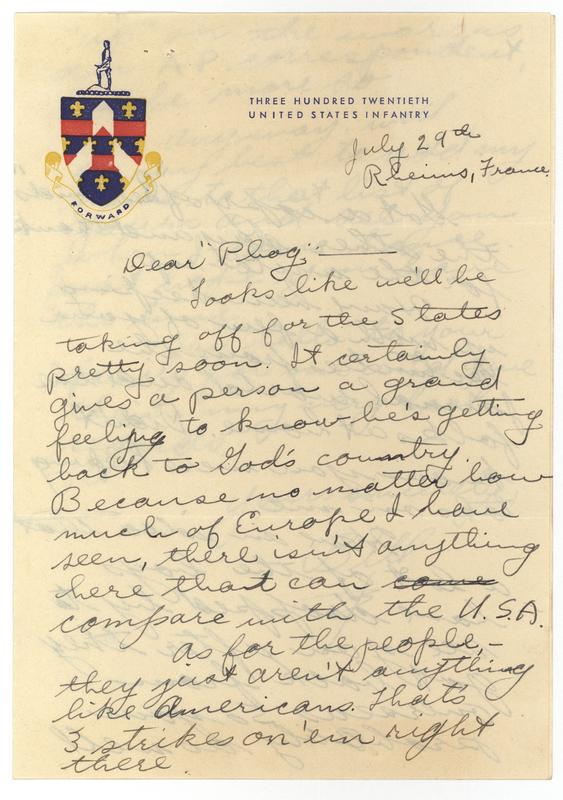 THREE HUNDRED TWENTIETH
UNITED STATES INFANTRY
FORWARD
July 29th
Rheims, France
Dear "Phog", —
Looks like we'll be
taking off for the States
pretty soon. It certainly
gives a person a grand
feeling to know he's getting
back to God's country.
Because no matter how
much of Europe I have
seen, there isn't anything
here that can come
compare with the U.S.A.
As for the people, –
they just aren't anything
like Americans. That's
3 strikes on 'em right
there.